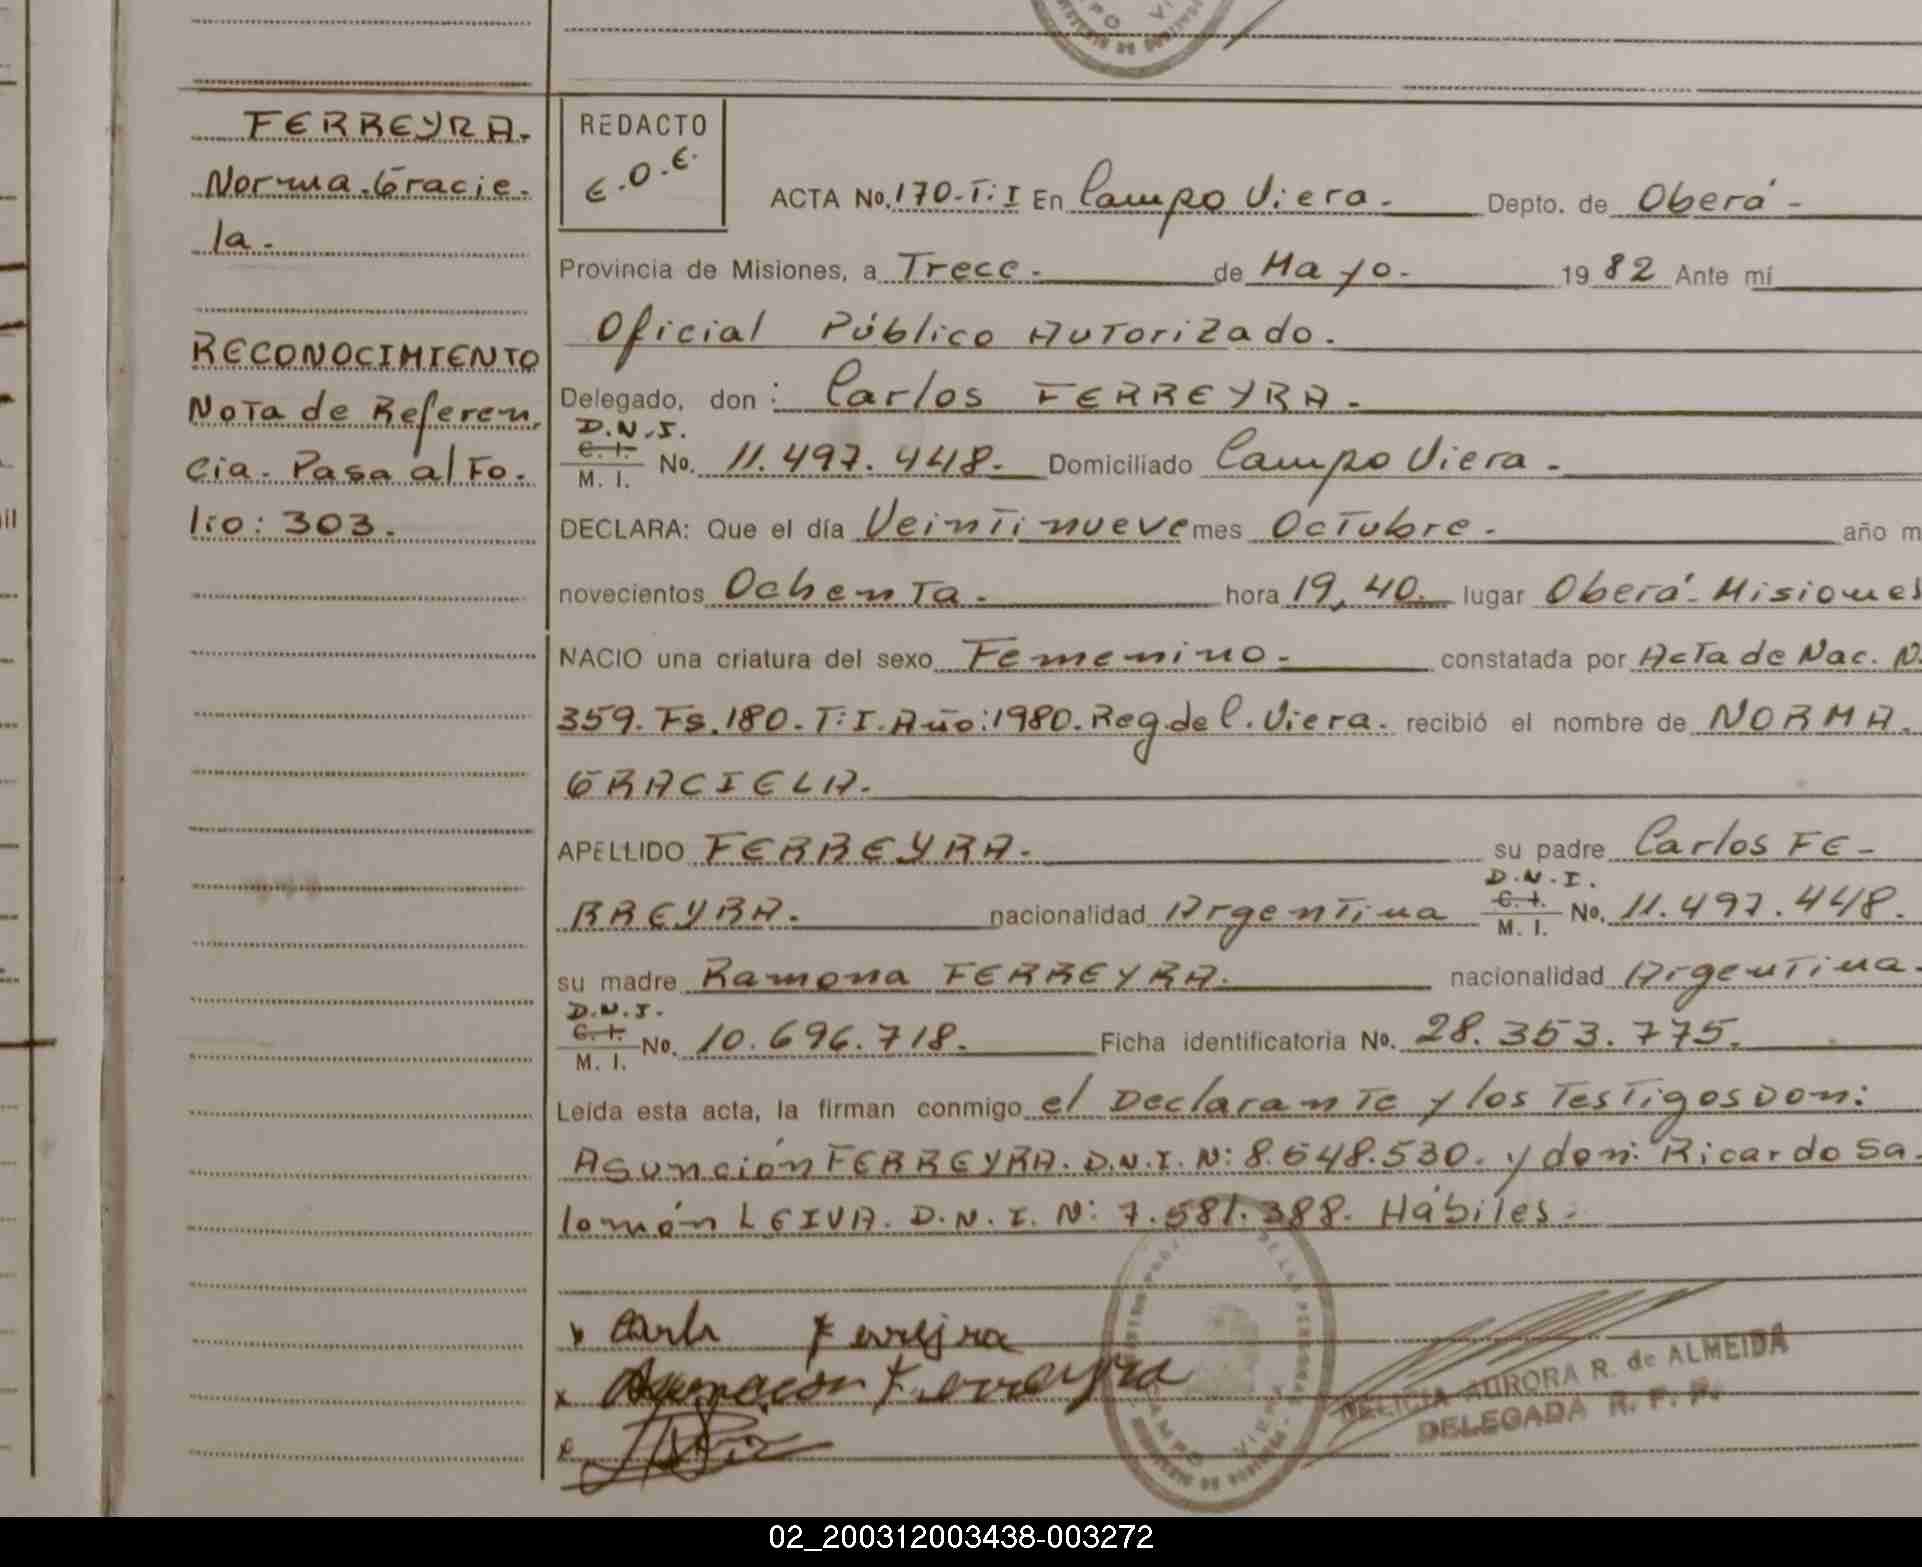 FERREYRA.
Norma Gracie-
la.
RECONOCIMIENTO
Nota de Referen-
cia. Pasa al Fo-
lio: 303.
REDACTO
E.O.E.
ACTA No. 170-T:I En Campo Viera. Depto. de Oberá-
Provincia de Misiones, a Trece. de Mayo. 1982 Ante mí
Oficial Público Autorizado.
Delegado, don: Carlos FERREYRA.
D.N.I.
C.I.
M. I. No. 11.497.448. Domiciliado Campo Viera.
DECLARA: Que el día Veintinueve mes Octubre. año m
novecientos Ochenta. hora 19,40. lugar Oberá-Misiones
NACIO una criatura del sexo Femenino. constatada por Acta de Nac. N.
359. Fs. 180. T:I. Año: 1980. Reg. de C. Viera. recibió el nombre de NORMA
GRACIELA.
APELLIDO FERREYRA. su padre Carlos FE-
D.N.I.
RREYRA. nacionalidad Argentina C.I. M. I. No. 11.497.448.
su madre Ramona FERREYRA. nacionalidad Argentina.
D.N.I.
C.I.
M. I. No. 10.696.718. Ficha identificatoria No. 28.353.775.
Leída esta acta, la firman conmigo el Declarante y los Testigos Don:
Asunción FERREYRA. D.N.I. N: 8.548.530. y don: Ricardo Sa-
lomón LEIVA. D.N.I. N: 7.581.388. Hábiles.
Ferreyra
Asuncion Ferreyra
CAMPO VIERA
DELICIA AURORA R. de ALMEIDA
DELEGADA R. P. P.
02_200312003438-003272